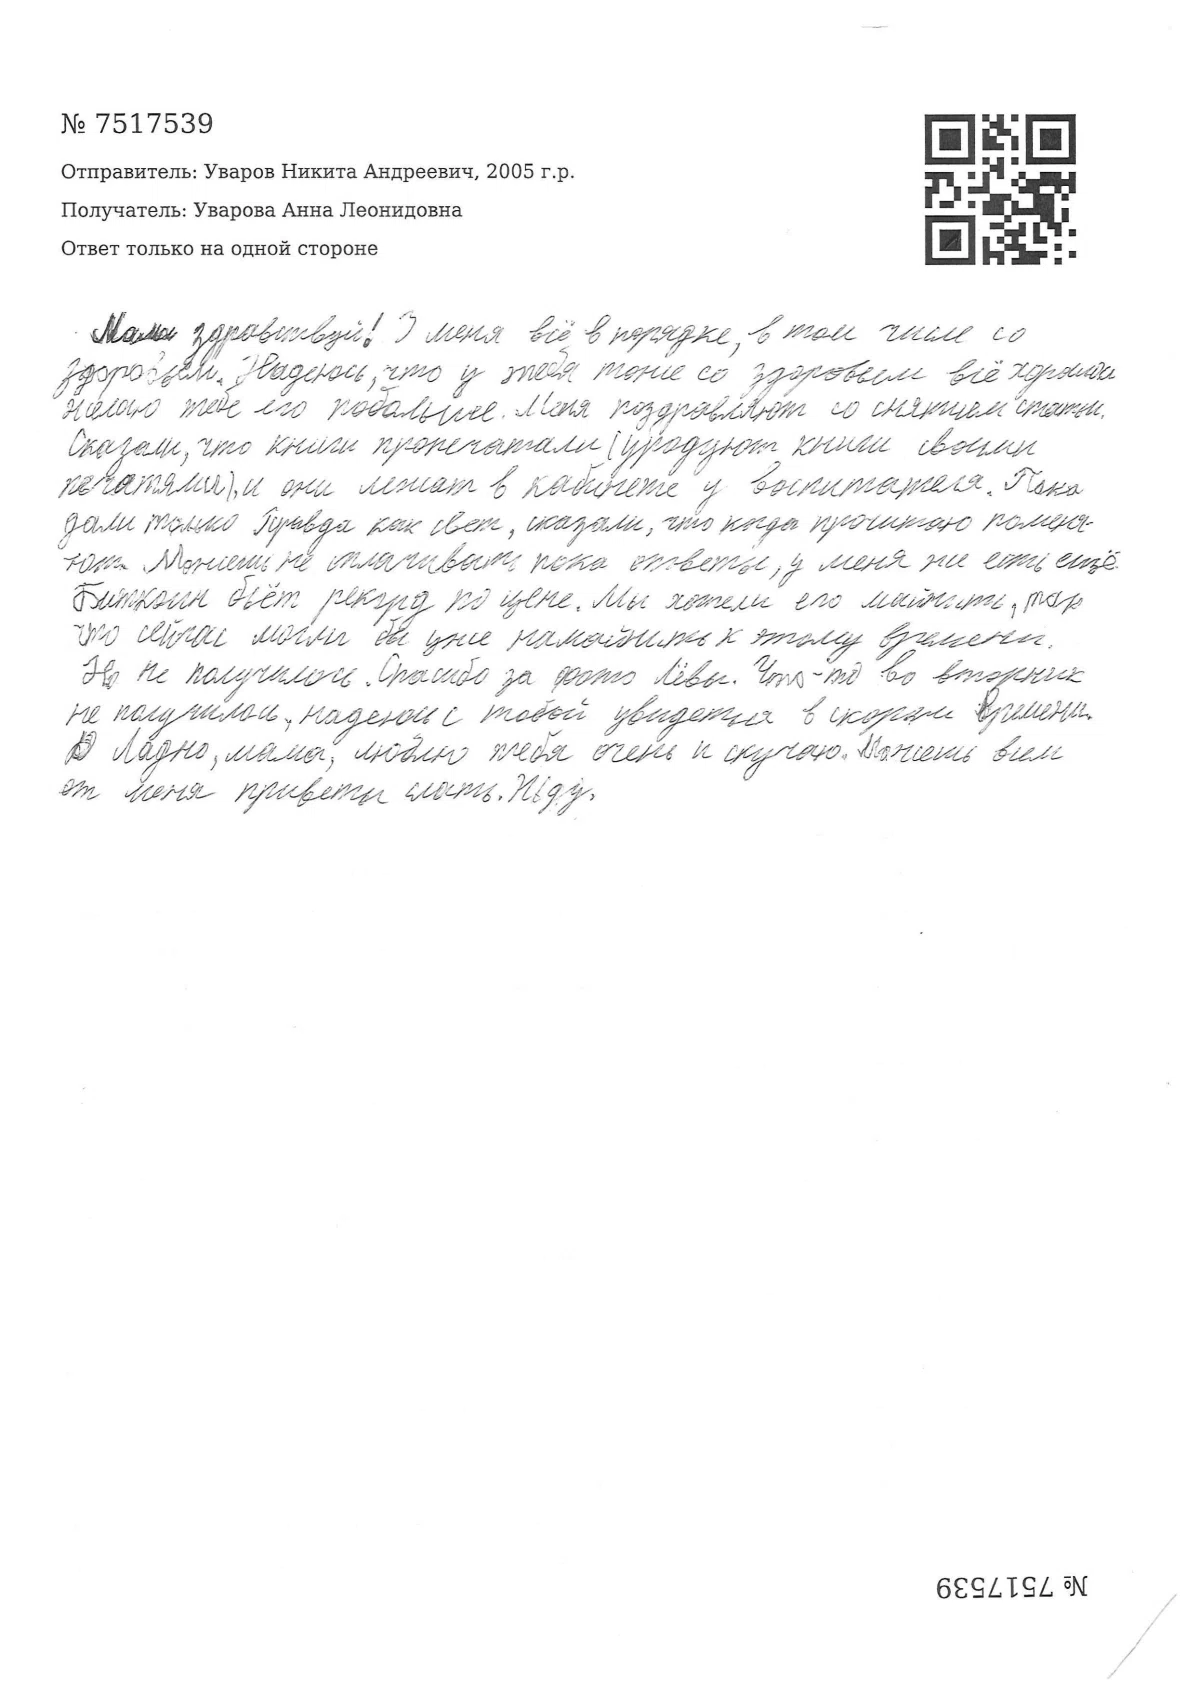 № 7517539
Отправитель: Уваров Никита Андреевич, 2005 г.р.
Получатель: Уварова Анна Леонидовна
Ответ только на одной стороне
Мама здравствуй! У меня всё в порядке, в том числе со
здоровьем. Надеюсь, что у тебя тоже со здоровьем всё хорошо
желаю тебе его побольше. Меня поздравляют со снятием статьи.
Сказали, что книги пропечатали (уродуют книги своими
печатями), и они лежат в кабинете у воспитателя. Пока
дали только Правда как свет, сказали, что когда прочитаю поменя-
ют. Можешь не оплачивать пока ответы, у меня же есть ещё.
Биткоин бьёт рекорд по цене. Мы хотели его майнить, так
что сейчас могли бы уже намайнить к этому времени.
Но не получилось. Спасибо за фото Лёвы. Что-то во вторник
не получилось, надеюсь с тобой увидеться в скором времени.
Ладно, мама, люблю тебя очень и скучаю. Можешь всем
от меня приветы слать. Жду.
№ 7517539